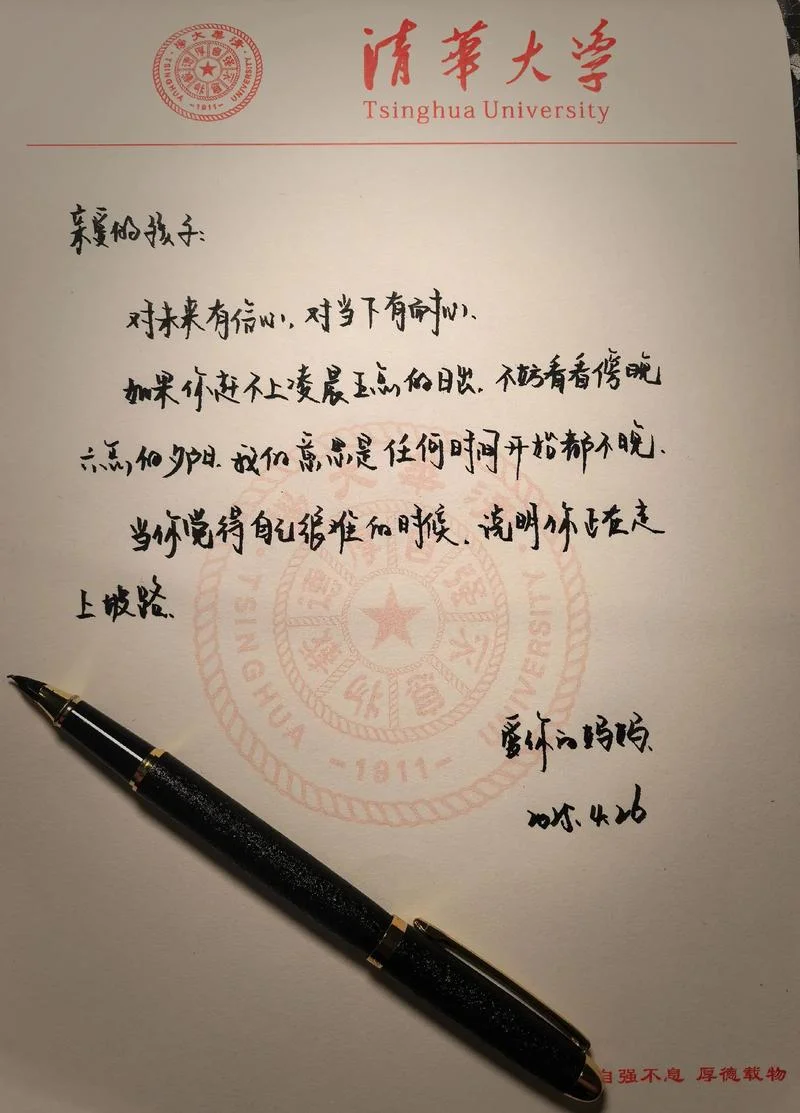 清華大学
Tsinghua University
清華大學
TSINGHUA UNIVERSITY
-1911-
自强不息
厚德载物
亲爱的孩子:
对未来有信心,对当下有耐心、
如果你赶不上凌晨五点的日出,不妨看看傍晚
六点的夕阳.我的意思是任何时间开始都不晚.
当你觉得自己很难的时候,说明你正在走
上坡路.
TSINGHUA UNIVERSITY
-1911-
爱你的妈妈.
2025.4.26
自强不息 厚德载物